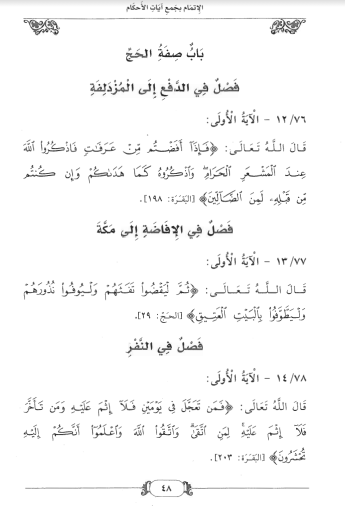 الإتمام بجمع آيات الأحكام
بَابُ صِفَةُ الحَجِّ
فَصْلٌ فِي الدَّفْعِ إِلَى المُزْدَلِفَةِ
١٢/٧٦ - الْآيَةُ الْأُولَى:
قَالَ اللَّهُ تَعَالَى: ﴿فَإِذَآ أَفَضْتُم مِّنْ عَرَفَٰتٍ فَاذْكُرُوا۟ اللَّهَ
عِندَ الْمَشْعَرِ الْحَرَامِ وَاذْكُرُوهُ كَمَا هَدَىٰكُمْ وَإِن كُنتُم
مِّن قَبْلِهِۦ لَمِنَ الضَّآلِّينَ﴾ [البَقَرَة: ١٩٨].
فَصْلٌ فِي الإِفَاضَةِ إِلَى مَكَّةَ
١٣/٧٧ - الْآيَةُ الْأُولَى:
قَالَ اللَّهُ تَعَالَى: ﴿ثُمَّ لْيَقْضُوا۟ تَفَثَهُمْ وَلْيُوفُوا۟ نُذُورَهُمْ
وَلْيَطَّوَّفُوا۟ بِالْبَيْتِ الْعَتِيقِ﴾ [الحَجّ: ٢٩].
فَصْلٌ فِي النَّفْرِ
١٤/٧٨ - الْآيَةُ الْأُولَى:
قَالَ اللَّهُ تَعَالَى: ﴿فَمَن تَعَجَّلَ فِي يَوْمَيْنِ فَلَآ إِثْمَ عَلَيْهِ وَمَن تَأَخَّرَ
فَلَآ إِثْمَ عَلَيْهِ لِمَنِ اتَّقَىٰ وَاتَّقُوا۟ اللَّهَ وَاعْلَمُوٓا۟ أَنَّكُمْ إِلَيْهِ
تُحْشَرُونَ﴾ [البَقَرَة: ٢٠٣].
٤٨